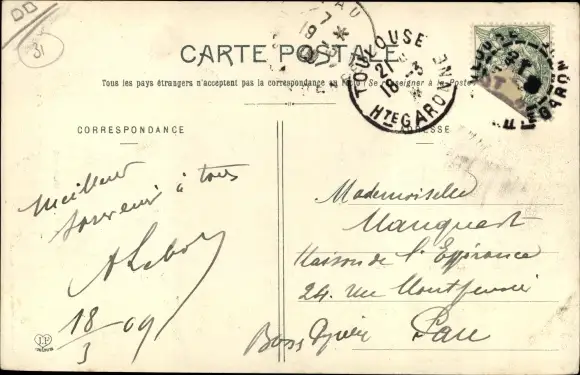 31
CARTE POSTALE
Tous les pays étrangers n'acceptent pas la correspondance au recto (Se renseigner à la Poste)
TOULOUSE
21
18 -3
HTE GARONNE
CORRESPONDANCE
ADRESSE
Meilleur
souvenir à tous
18/3 09
Mademoiselle
Manquest
Maison de l'Espérance
24, rue
Pau
Basses